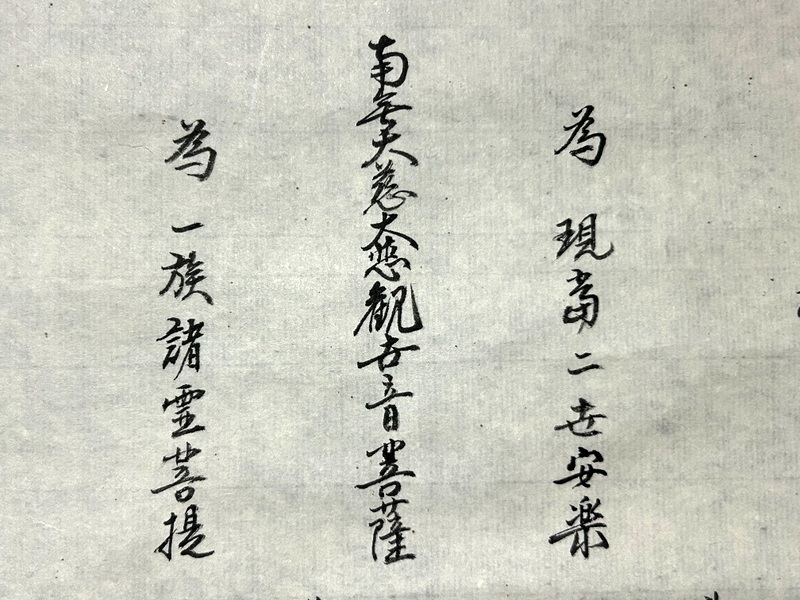 為 現當二世安楽
南無大慈大悲観世音菩薩
為 一族諸霊菩提